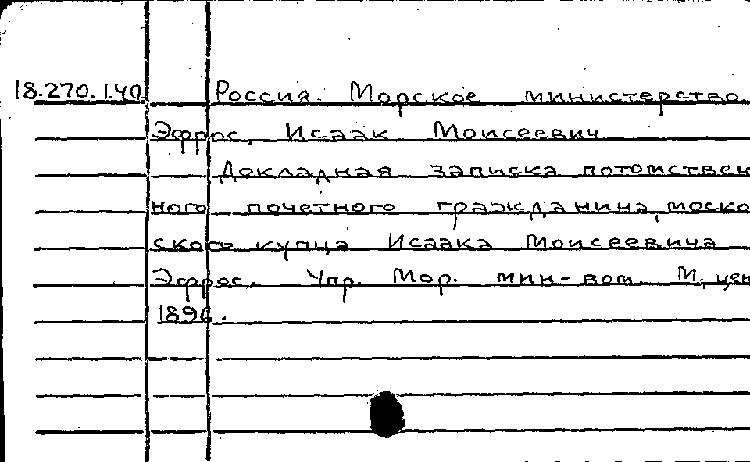 18.270.1.40 Россия. Морское министерство
Эфрос, Исаак Моисеевич
Докладная записка потомствен
ного почетного гражданина, моско
ского купца Исаака Моисеевича
Эфрос. Упр. Мор. мин-вом. М, цен
189